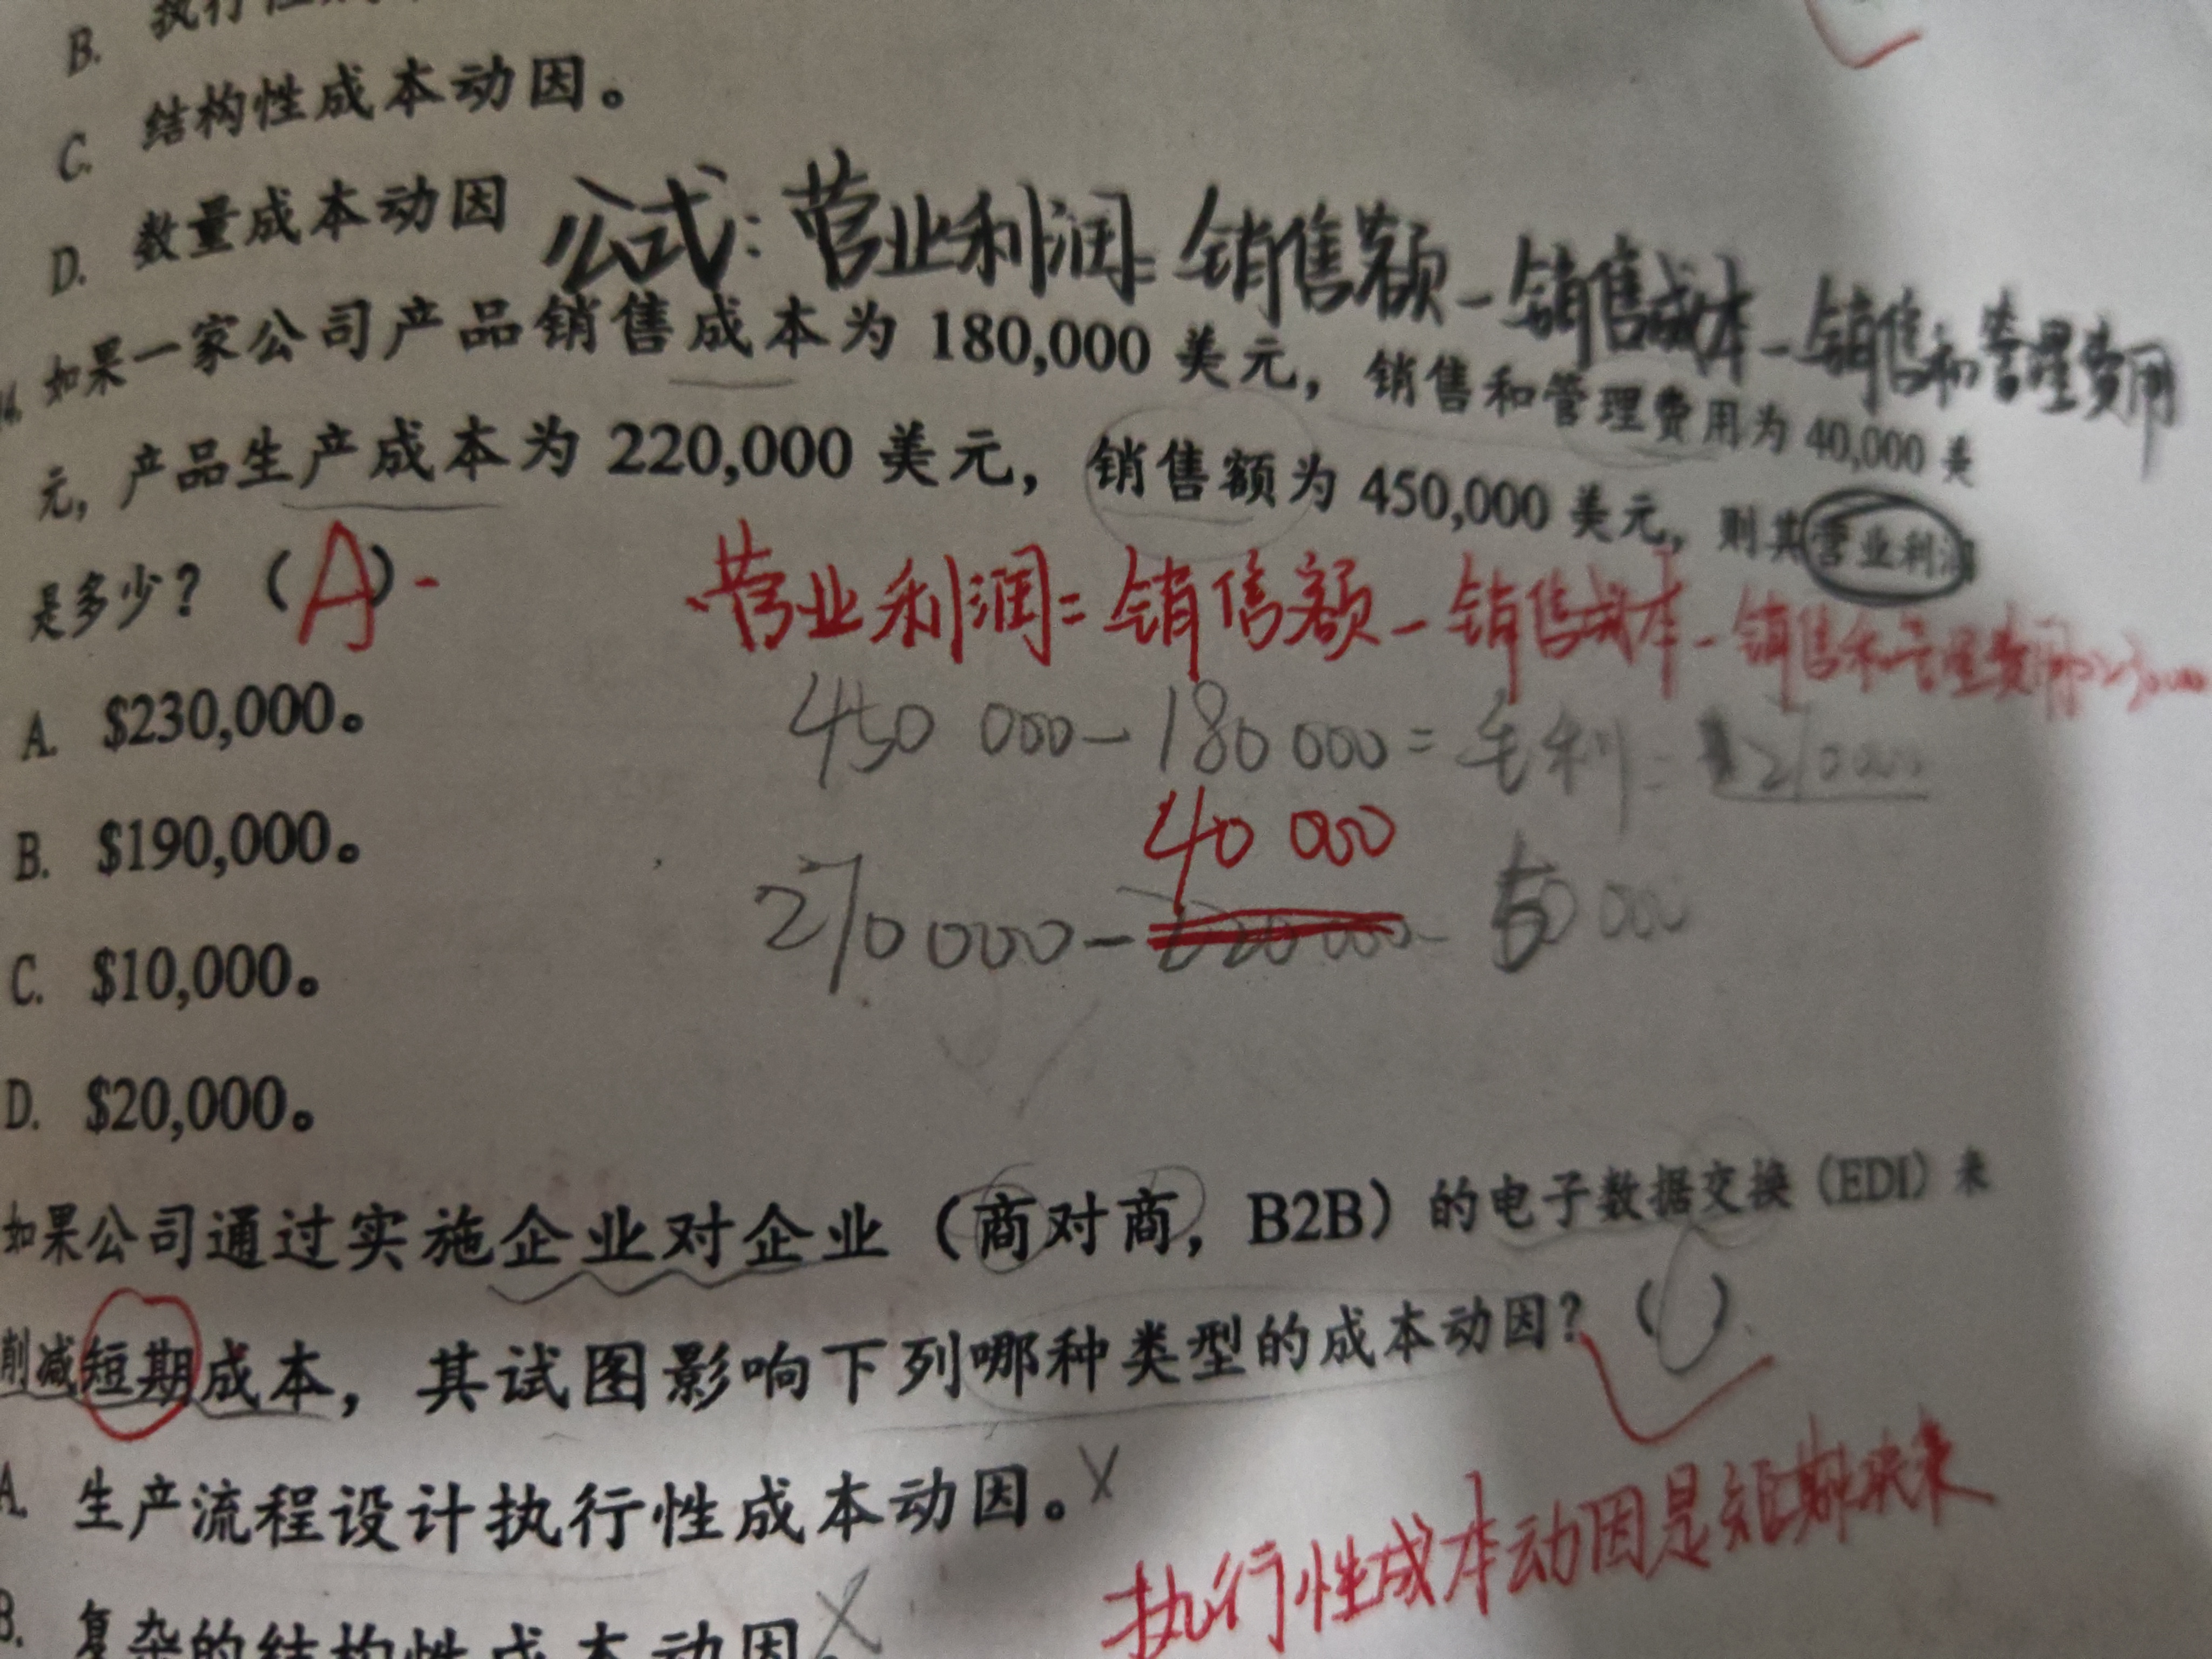 B. 执行性
C. 结构性成本动因。
D. 数量成本动因
公式：营业利润=销售额-销售成本-销售和管理费用
如果一家公司产品销售成本为 180,000 美元，销售和管理费用为 40,000 美
元，产品生产成本为 220,000 美元，销售额为 450,000 美元，则其营业利润
是多少？（A）
营业利润=销售额-销售成本-销售和管理费用
A. $230,000。
450 000-180 000=毛利=
40 000
B. $190,000。
270 000-220 000- 50 000
C. $10,000。
D. $20,000。
如果公司通过实施企业对企业（商对商，B2B）的电子数据交换（EDI）来
削减短期成本，其试图影响下列哪种类型的成本动因？（）
A. 生产流程设计执行性成本动因。X
执行性成本动因是短期决策
B. 复杂的结构性成本动因。X